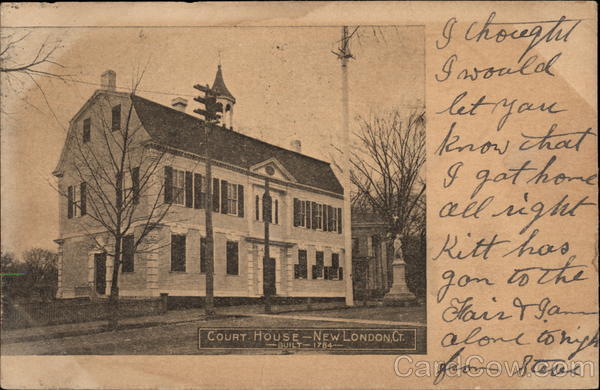 I thought
I would
let you
know that
I got home
all right
Kitt has
gon to the
Fair & I am
alone tonigh
from Steve
COURT HOUSE – NEW LONDON, CT.
BUILT – 1784
CardCow.com